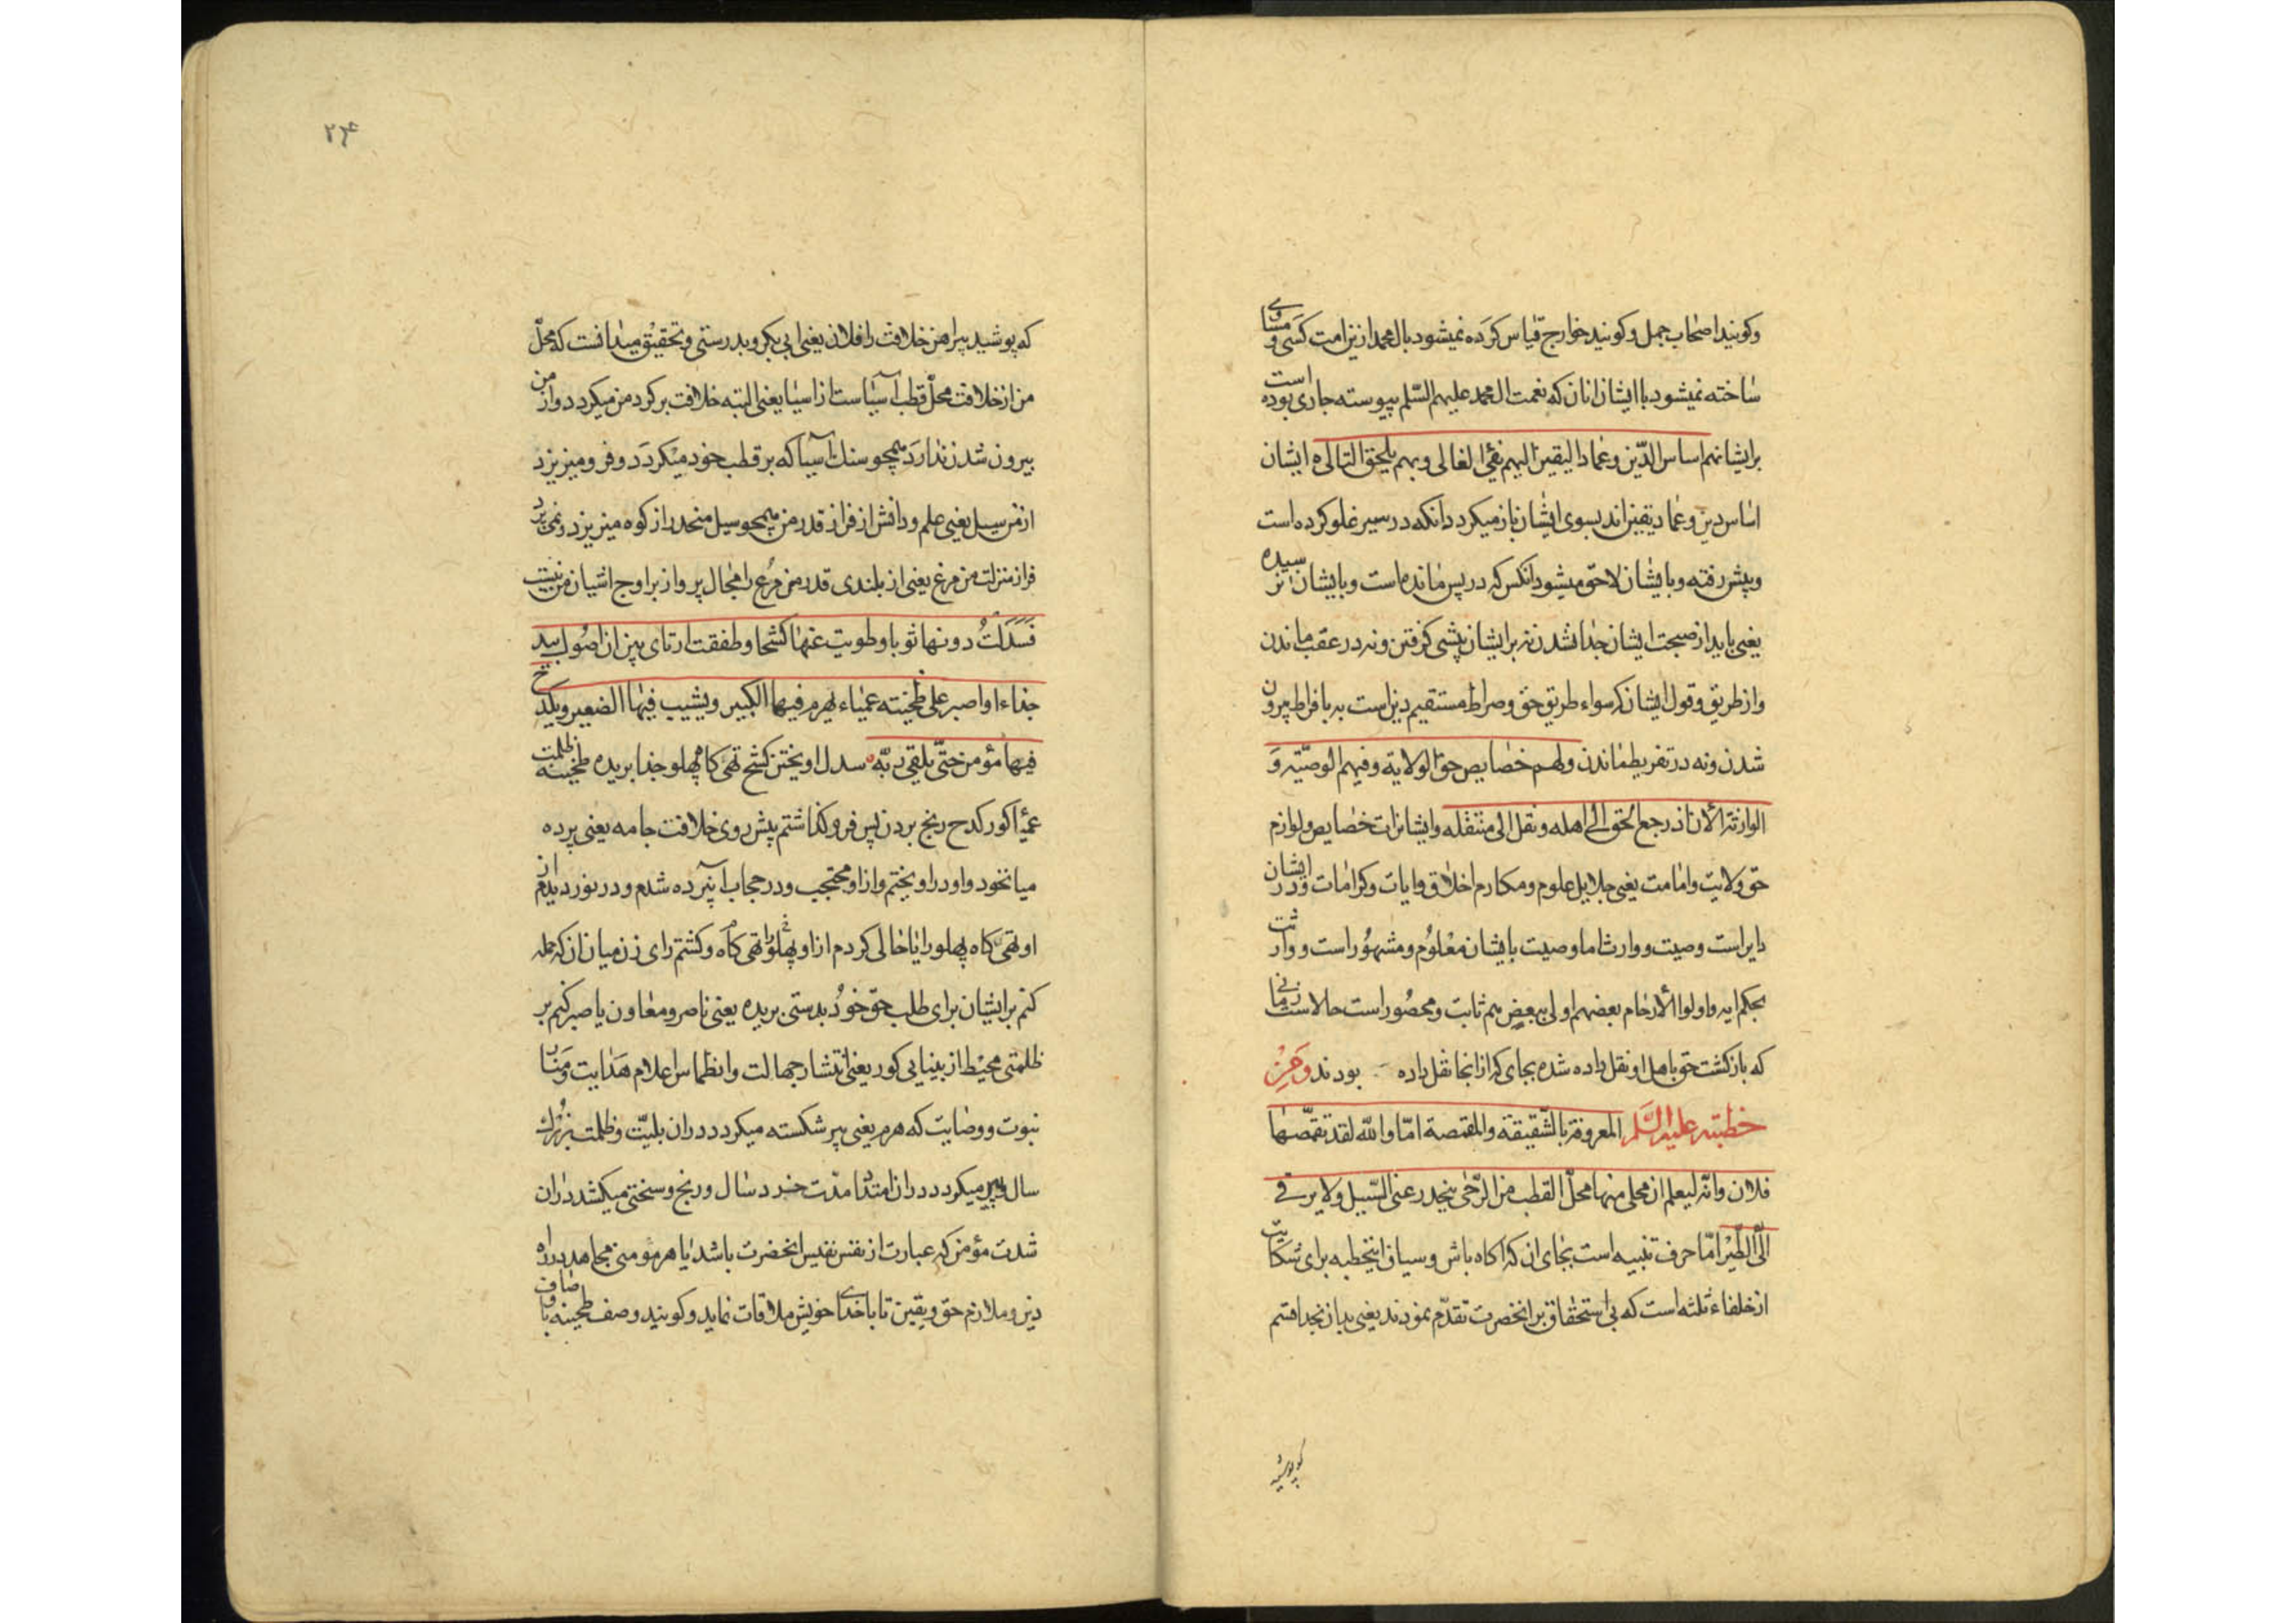 وکویند اصحاب جمل وکویند خوارج قیاس کرَده نمیشود بال محمد ازین امت کسَی و مساوی
ساخته نمیشود با ایشان انان که نعمت ال محمد علیهم السّلم پیوسته جاری بوده است
برایشان هم اساس الدّین وعماد الیقین الیهم یفئ الغالی وبهم یلحق التالی ایشان
اساس دین وعماد یقین اند بسوی ایشان باز میکردد انکه در سیر غلو کرده است
وپیش رفته وبایشان لاحق میشود انکس که در پس مانده است وبایشان نرسیده
یعنی باید از صحبت ایشان جدا نشدن نه برایشان پیشی کرفتن ونه در عقب ماندن
واز طریق وقول ایشان که سواء طریق حق وصراط مستقیم دین است نه بافراط بیرون
شدن ونه در تفریط ماندن ولهم خصایص حق الولایة وفیهم الوصیّة وَ
الوراثة الأن اذ رجع الحق الی اهله ونقل الی منتقله وایشانراست خصایص ولوازم
حق ولایت وامامت یعنی جلایل علوم ومکارم اخلاق وایات وکرامات ودر ایشان
دایر است وصیت ووراثت اما وصیت بایشان معلوُم ومشهوُر است ووراثت
بحکم ایه واولوا الأرحام بعضهم اولی ببعضٍ هم ثابت ومحصُور است حالا است زمانی
که باز کشت حق باهل او ونقل داده شده بجای که از انجا نقل داده بودند وَمِنْ
خطبته علیه السَّلم المعروفة بالشّقیقة والمقمصة امّا والله لقد تقمّصها
فلان وانّه لیعلم ان محلی منها محلّ القطب من الرّحیٰ ینحدر عنی السّیل ولا یرقی
الیّ الطّیْر امّا حرف تنبیه است بجای ان که اکاه باش وسیاق اینخطبه برای شکایت
از خلفاء ثلثه است که بی استحقاق بر انحضرت تقدّم نمودند یعنی بدان بخدا قسم
که پوشید
۲۴
که پوشید پیراهن خلافت را فلان یعنی ابی بکر وبدرستی وتحقیق میدانست که محلّ
من از خلافت محلّ قطب آسیاست از اسیا یعنی البته خلافت بر کرد من میکردد واز من
بیرون شدن ندارد همچو سنک آسیا که بر قطب خود میکردَد وفرو میریزد
از من سیل یعنی علم ودانش از فراز قدر من همچو سیل منحدر از کوه میریزد ونمی پرد
فراز منزلت من مرغ یعنی از بلندی قدر من مرُغ را مجال پرواز بر اوج اشیان من نیست
فَسَدَلتُ دونها ثوبا وطویت عنها کشحا وطفقت ارتای بین ان اصُول بید
جذاء او اصبر علی طخیة عمیاء یهرم فیها الکبیر ویشیب فیها الصغیر ویکدح
فیها مؤمن حتّی یلقی ربّه سدل اویختن کشح تهی کاه پهلو جذا بریده طخیه ظلمت
عمیا کور کدح رنج بردن پس فرو کذاشتم پیش روی خلافت جامه یعنی پرده
میانخود واو دراویختم واز او محتجب ودر حجاب آنپرده شدم ودر نوردیدم از
او تهی کاه پهلو را یا خالی کردم از او پهلو را تهی کاه وکشتم رای زن میان ان که حمله
کنم برایشان برای طلب حق خوُد بدستی بریده یعنی ناصر ومعاون یا صبر کنم بر
ظلمتی محیْط از بینایی کور یعنی انتشار جهالت وانطماس اعلام هدایت ومنار
نبوت ووصایت که هرم یعنی پیر شکسته میکردد در ان بلیّت وظلمت بزُرک
سال وپیر میکردد در ان امتداد مدّت خرد سال ورنج وسختی میکشد در ان
شدت مؤمن که عبارت از نفس نفیس انحضرت باشد یا هر مؤمنی مجاهد در راه
دین وملازم حق ویقین تا با خدای خویش ملاقات نماید وکویند وصف طخیه با